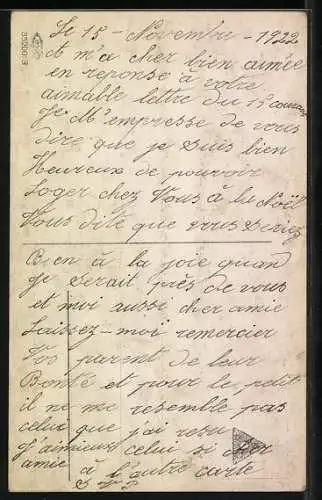 Le 15 - Novembre - 1922
A m'a cher bien aimée
en reponse à votre
aimable lettre du 13 courant
Je M'empresse de vous
dire que je suis bien
Heureux de pouvoir
loger chez Vous à la Noël
Vous dite que vous seriez
Bien à la joie quand
Je serait près de vous
et moi aussi cher amie
Laissez-moi remercier
Vos parent de leur
Bonté et pour le petit
il ne me resemble pas
celui que j'ai resu
J'aimieux celui si cher
amie à l'autre carte